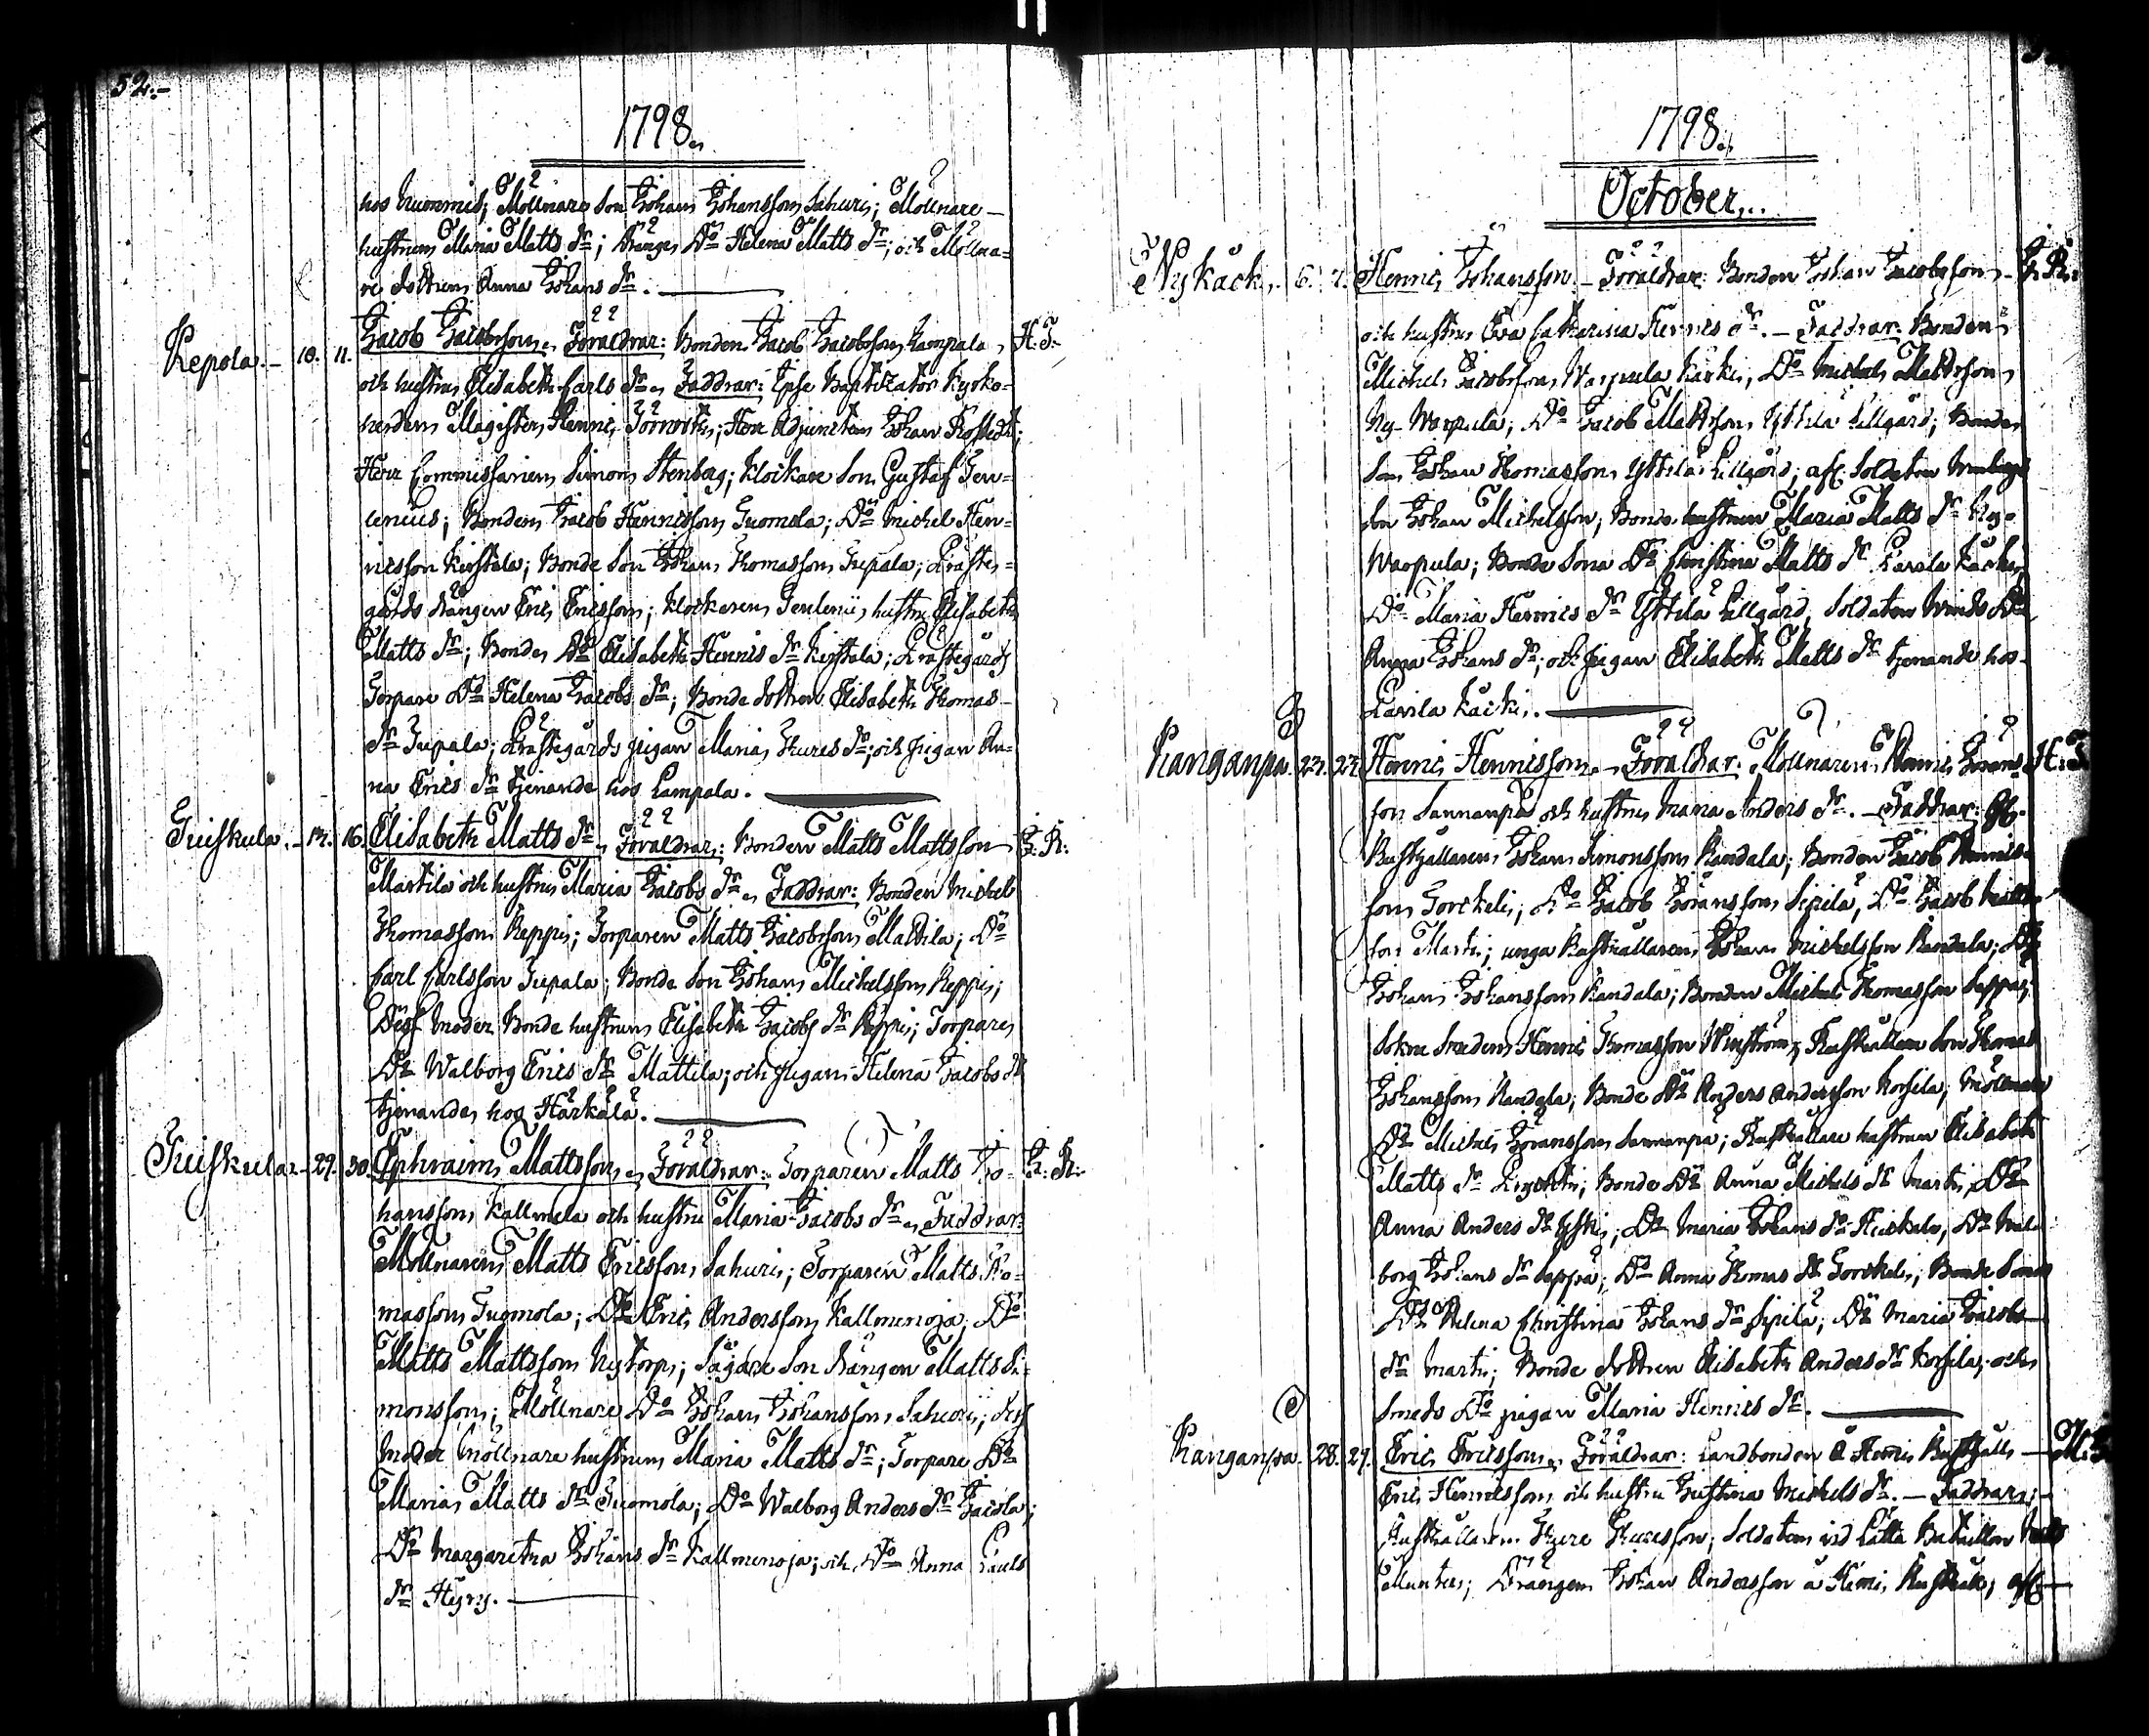 52.-
1798.
hos Nummis; Möllnare Son Johan Johansson Sahuris; Möllnare-
hustrun Maria Matts Dr; Do Helena Matts Dr; och Möllna-
re dottren Anna Johans Dr.
Repola.- 10. 11. Jacob Jacobsson. Föräldrar: Bonden Jacob Jacobsson Lampala, H:F:
och hustrun Elisabeth Carls Dr. Faddrar: Ipse Baptizator Kyrko-
herden Magister Henric; Herr Adjuncten Johan
Herr Commissarien Simon Stenberg; Klockare Son Gustaf Ten-
lenius; Bonden Jacob Henricsson Tuomola; Do Michel Hen-
ricsson; Bonde Son Johan Thomasson Tupala; Präste-
gårds drängen Eric Ericsson; Klockaren Tenlenii hustru Elisabeth
Matts Dr; Bonde Do Elisabeth Henrics Dr; Prästegårds
Torpare Do Helena Jacobs Dr; Bonde dottren Elisabeth Thomas-
Dr Tupala; Prästegårds pigan Maria Thures Dr; och pigan An-
na Erics Dr tjenande hos Lampala.
Tuiskula.- 16. Elisabeth Matts Dr. Föräldrar: Bonden Matts Mattsson J:R:
Martila och hustru Maria Jacobs Dr. Faddrar: Bonden Michel
Thomasson Reppi; Torparen Matts Jacobsson Mattila; Do
Carl Carlsson Tupala; Bonde Son Johan Michelsson Reppi;
Dess Moder Bonde hustrun Elisabeth Jacobs Dr Reppi; Torpare
Do Walborg Erics Dr Mattila; och pigan Helena Jacobs Dr
tjenande hos Härkälä.
Tuiskula.- 29. 30. Ephraim Mattsson. Föräldrar: Torparen Matts Jo- J:R:
hansson Kallmela och hustru Maria Jacobs Dr. Faddrar:
Möllnaren Matts Ericsson Sahuris; Torparen Matts Tho-
masson Tuomola; Do Eric Andersson Kallmenoja; Do
Matts Mattsson Nytorp; Sågare Son drängen Matts Si-
monsson; Möllnare Do Johan Johansson Sahuris; dess
Moder Möllnare hustrun Maria Matts Dr; Torpare Do
Maria Matts Dr Tuomola; Do Walborg Anders Dr Jacola;
Do Margaretha Johans Dr Kallmenoja; och Do Anna Pauls
Dr Hyry.
1798.
October.
Nykäck. 6. 7. Henric Johansson. - Föräldrar: Bonden Johan Jacobsson J:R:
och hustru Eva Catharina Henrics Dr. - Faddrar: Bonden
Michel Jacobsson Warpula Käcki; Do Michel Mattsson
Ny-Warpula; Do Jacob Mattsson Yttilä Lillgård; Bonde
Son Johan Thomasson Yttilä Lillgård; afsk. Soldaten
Son Johan Michelsson; Bonde hustrun Maria Matts Dr Ny-
Warpula; Bonde Sona Do Christina Matts Dr Pavila Käcki;
Do Maria Henrics Dr Yttilä Lillgård, Soldaten Do
Anna Johans Dr; och pigan Elisabeth Matts Dr tjenande hos
Pavila Käcki.
Kanganpä. 23. 23. Henric Henricsson. - Föräldrar: Möllnaren Henric Görans- H:F:
son Sannanpä och hustru Maria Anders Dr. - Faddrar:
Rusthållaren Johan Simonsson Randala; Bonden Jacob Henrics-
son Torckeli; Do Jacob Göransson Sipilä; Do Jacob Matts-
son Martti; unga Rusthållaren Johan Michelsson Randala; Do
Johan Johansson Randala; Bonden Michel Thomasson Seppä;
Sokne Smeden Henric Thomasson Winström; Rusthållare Son Thomas
Johansson Randala; Bonde Do Anders Andersson Korsila; Möllnare
Do Michel Göransson Sannanpä; Rusthållare hustrun Elisabeth
Matts Dr; Bonde Do Anna Michels Dr Martti; Do
Anna Anders Dr; Do Maria Johans Dr; Do Wal-
borg Johans Dr Seppä; Do Anna Thomas Dr Torckeli; Bonde Sona
Do Helena Christina Johans Dr Sipilä; Do Maria Jacobs
Dr Martti; Bonde dottren Elisabeth Anders Dr Korsila; och
Smeds Do pigan Maria Henrics Dr.
Kanganpä. 28. 29. Eric Ericsson. Föräldrar: Landbonden å Hemi Rusthåll
Eric Henricsson och hustru Justina Michels Dr. - Faddrar:
Rusthållaren Thure Thuresson; Soldaten vid Lätta Bataillon
Munter; Drängen Johan Andersson å Hemi Rusthåll; afsk.